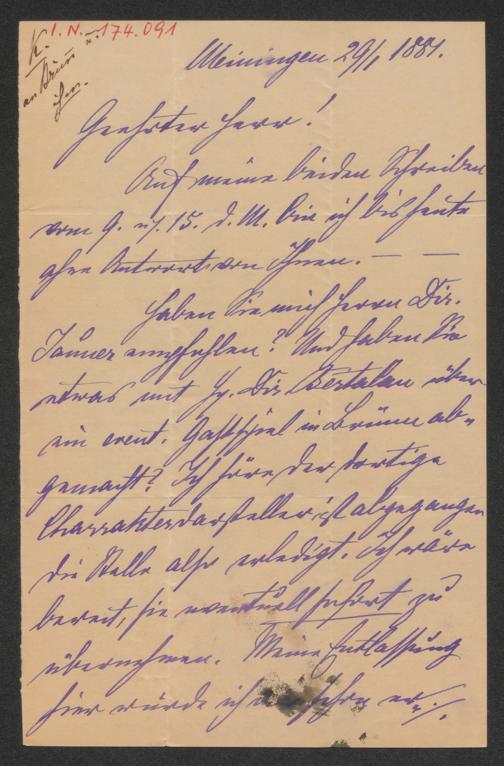 I. N. 174.091
K.
an Brünn
Meiningen 29/1 1881.
Geehrter Herr!
Auf meine beiden Schreiben
vom 9. u. 15. d. M. bin ich bis heute
ohne Antwort von Ihnen. — —
Haben Sie mich Herrn Dir.
Jauner empfohlen? Und haben Sie
etwas mit H. Dir. Bertalan über
ein event. Gastspiel in Brünn ab-
gemacht? Ich höre der dortige
Charakterdarsteller ist abgegangen
die Stelle also erledigt. Ich wäre
bereit, sie eventuell sofort zu
übernehmen. Meine Entlassung
hier würde ich schon er-